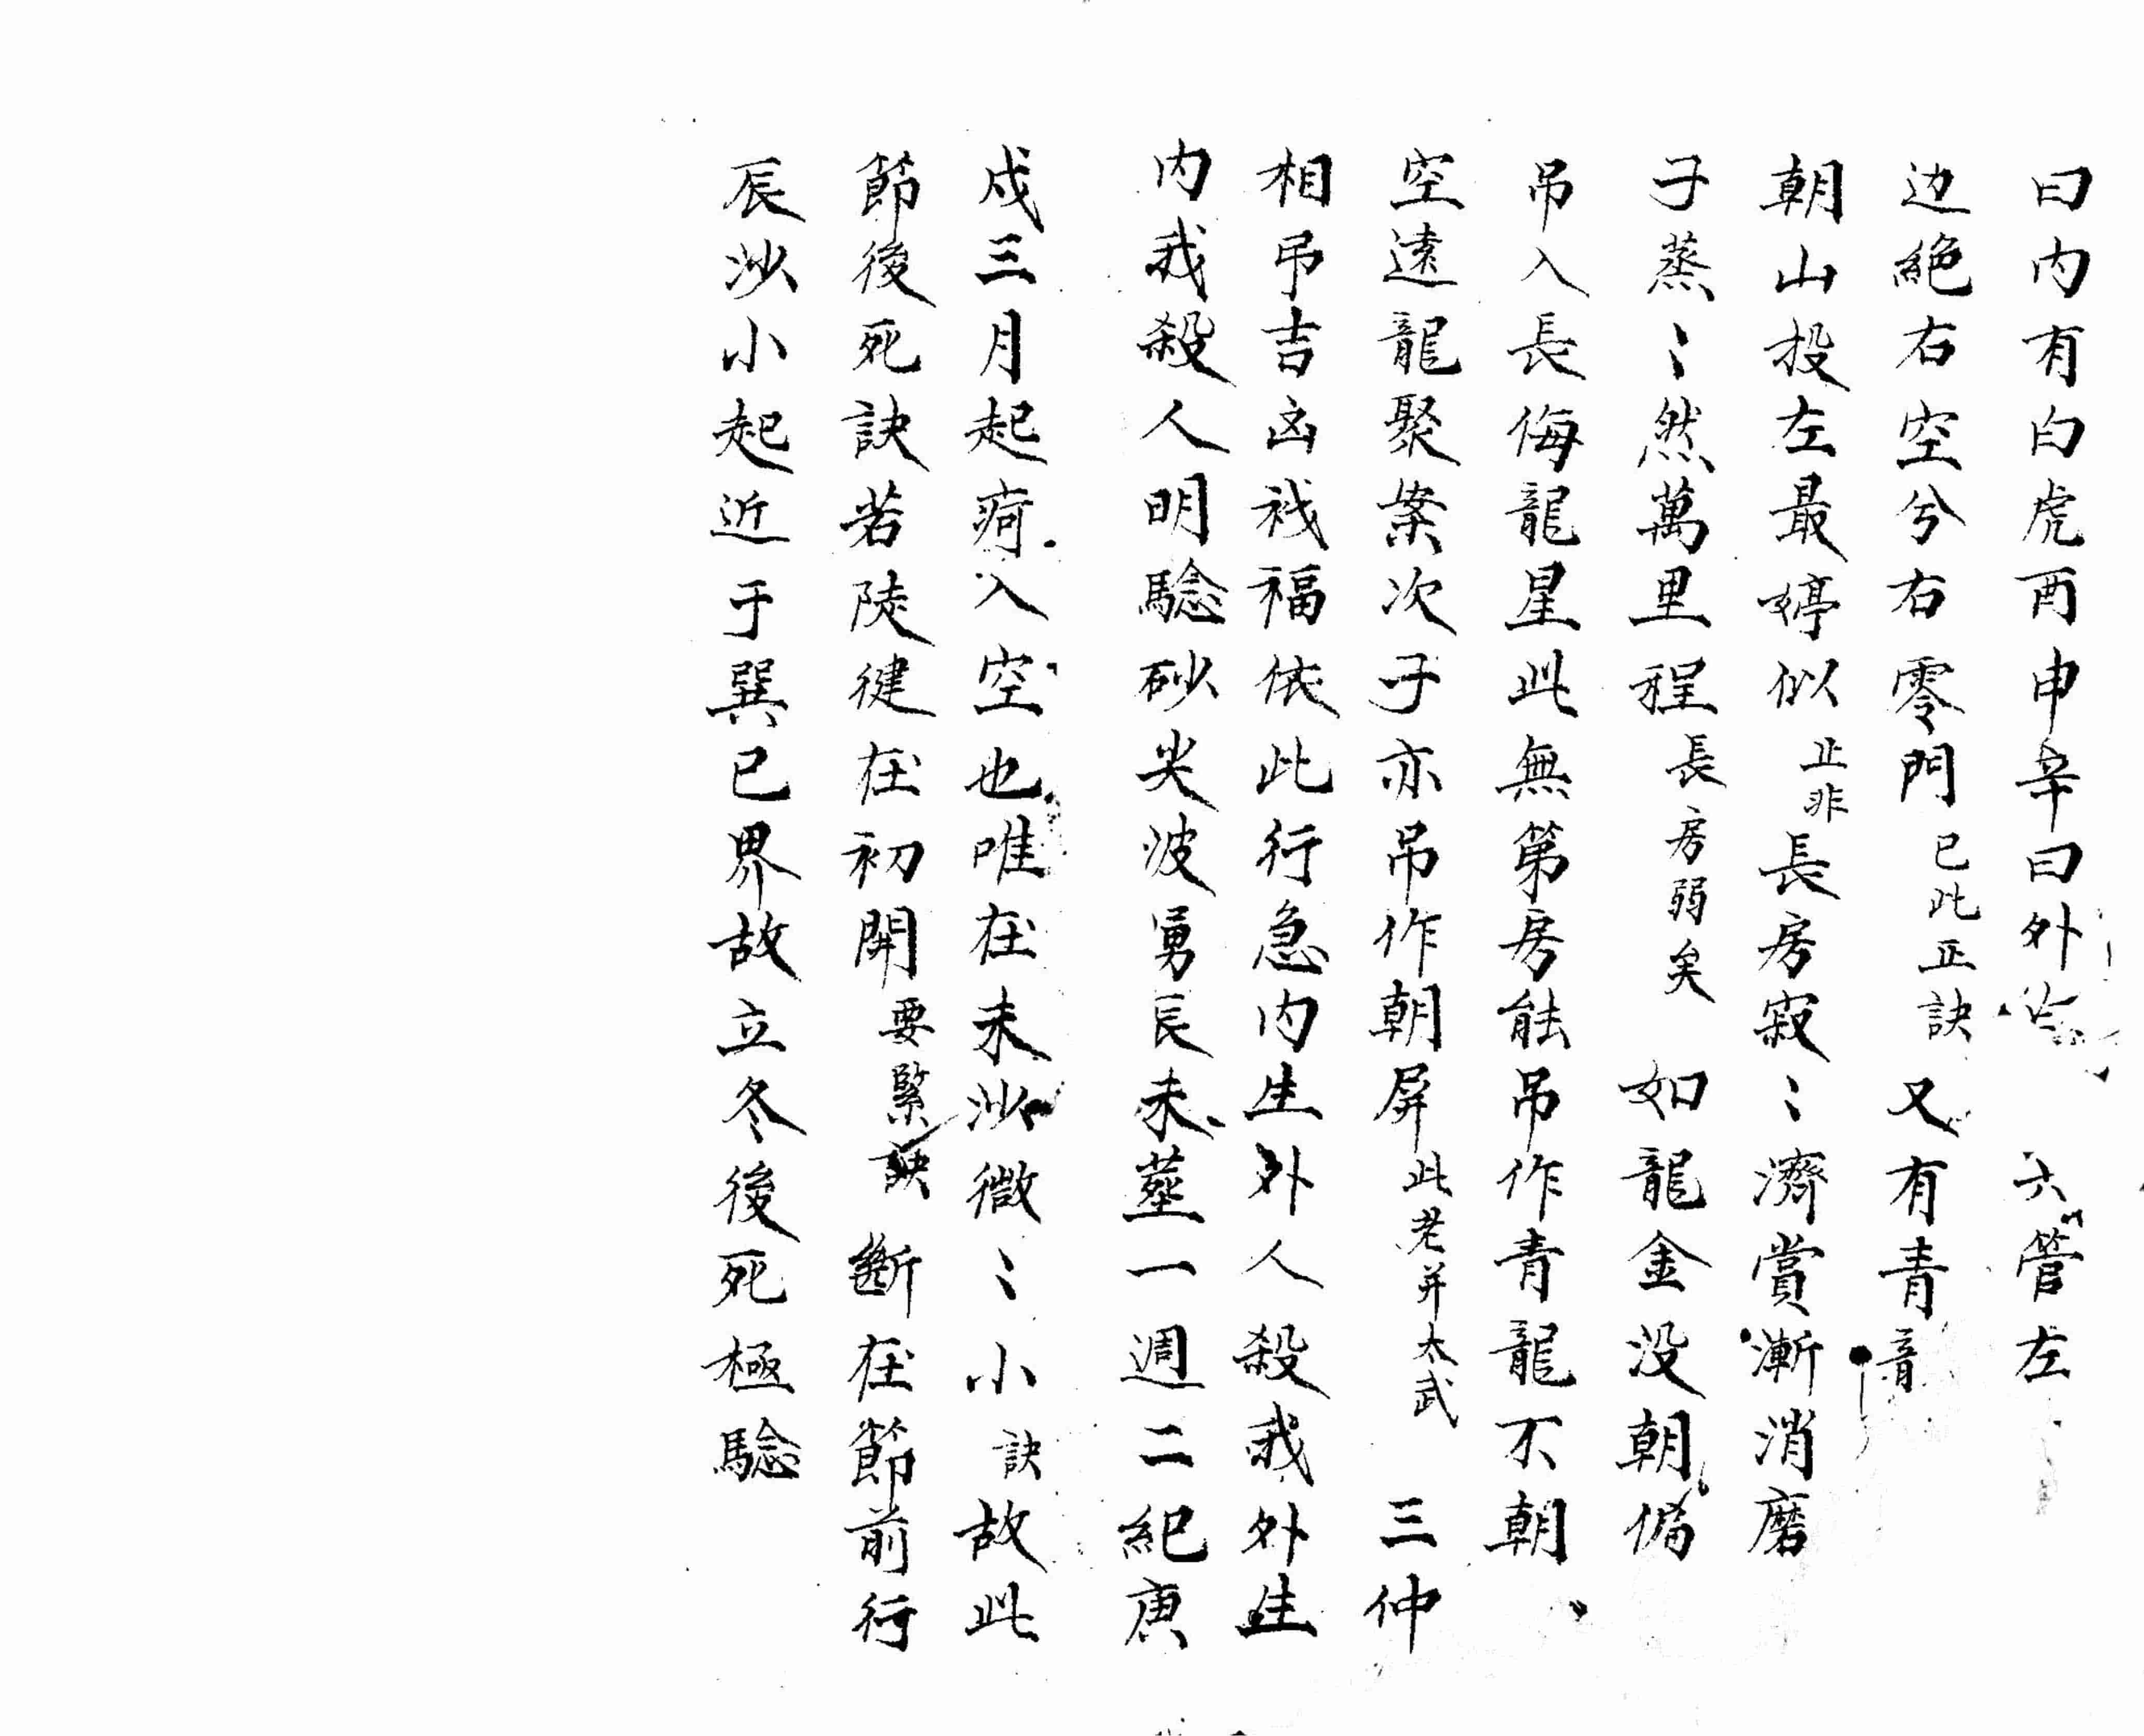 曰内有白虎酉申辛曰外 六管左
边絕右空兮右零門 已此正訣 又有青
朝山投左最婷似 止非 長房寂〻濟賞漸消磨
子蒸〻然萬里程 長房弱矣 如龍金没朝偏
吊入長侮龍星此無第房能吊作青龍不朝
空遠龍聚案次子亦吊作朝屏 此老并太武 三仲
相吊吉凶 福依此行急内生外人殺戒外生
内戒殺人明驗砂尖波勇長未塟一週二紀庚
戍三月起疴入空也唯在未沙微〻小訣故此
節後死訣若陡徤在初開 要緊訣 断在節前行
辰沙小起近于巽巳界故立冬後死極驗